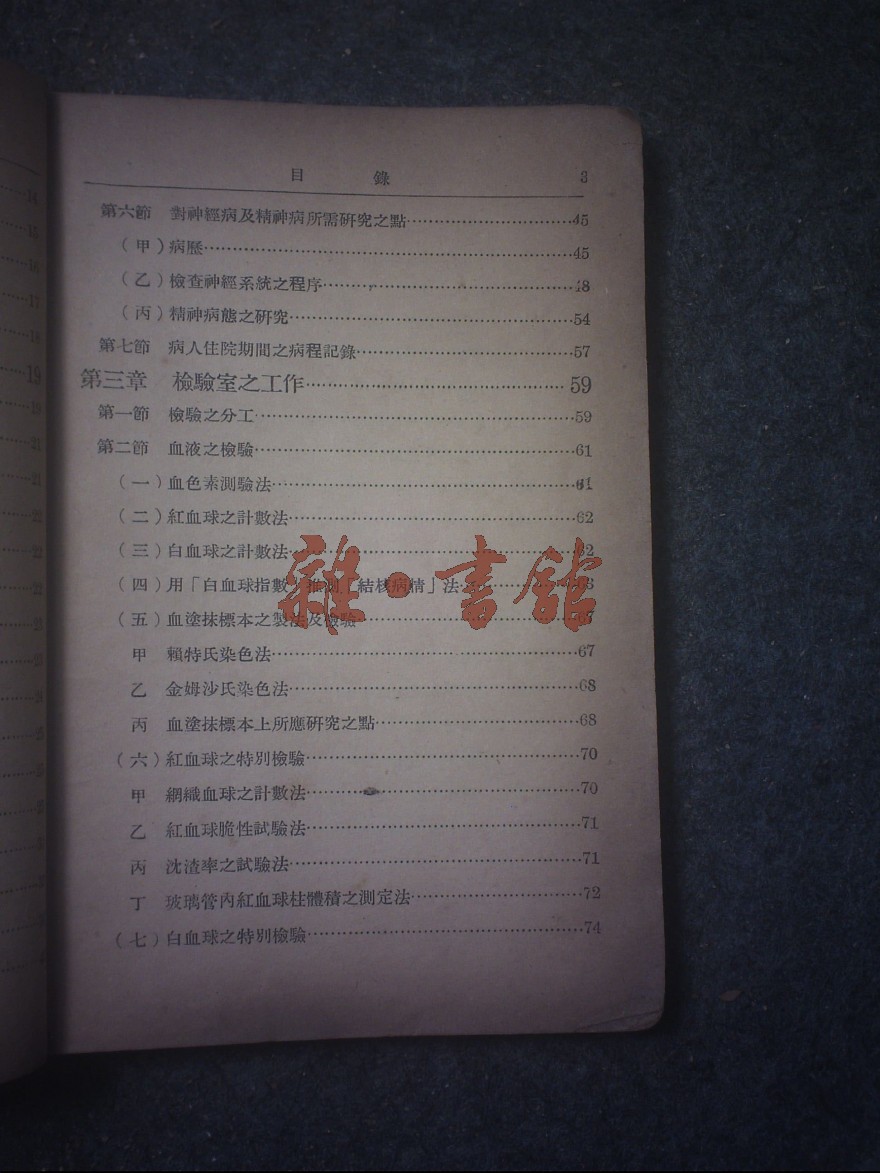 目 錄 3
第六節 對神經病及精神病所需研究之點…………45
(甲)病歷…………45
(乙)檢查神經系統之程序…………48
(丙)精神病態之研究…………54
第七節 病人住院期間之病程記錄…………57
第三章 檢驗室之工作…………59
第一節 檢驗之分工…………59
第二節 血液之檢驗…………61
(一)血色素測驗法…………61
(二)紅血球之計數法…………62
(三)白血球之計數法…………62
(四)用「白血球指數」推測「結核病情」法…………63
(五)血塗抹標本之製法及檢驗…………67
甲 賴特氏染色法…………67
乙 金姆沙氏染色法…………68
丙 血塗抹標本上所應研究之點…………68
(六)紅血球之特別檢驗…………70
甲 網織血球之計數法…………70
乙 紅血球脆性試驗法…………71
丙 沈渣率之試驗法…………71
丁 玻璃管內紅血球柱體積之測定法…………72
(七)白血球之特別檢驗…………74
雜·書館
14
15
16
17
18
19
19
21
21
22
22
22